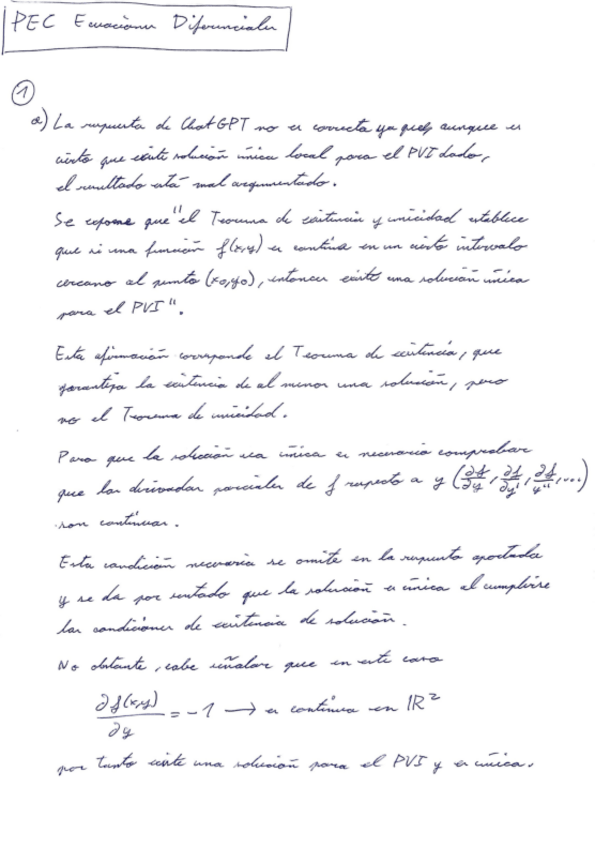 PEC Ecuaciones Diferenciales
1
a) La respuesta de ChatGPT no es correcta ya que, aunque es
cierto que existe solución única local para el PVI dado,
el resultado está mal argumentado.
Se expone que "el Teorema de existencia y unicidad establece
que si una función f(x,y) es continua en un cierto intervalo
cercano al punto (x0,y0), entonces existe una solución única
para el PVI".
Esta afirmación corresponde al Teorema de existencia, que
garantiza la existencia de al menos una solución, pero
no el Teorema de unicidad.
Para que la solución sea única es necesario comprobar
que las derivadas parciales de f respecto a y (∂f/∂y, ∂f/∂y', ∂f/y'', ...)
son continuas.
Esta condición necesaria se omite en la respuesta aportada
y se da por sentado que la solución es única al cumplirse
las condiciones de existencia de solución.
No obstante, cabe señalar que en este caso
∂f(x,y)/∂y = -1 → es continua en IR²
por tanto existe una solución para el PVI y es única.